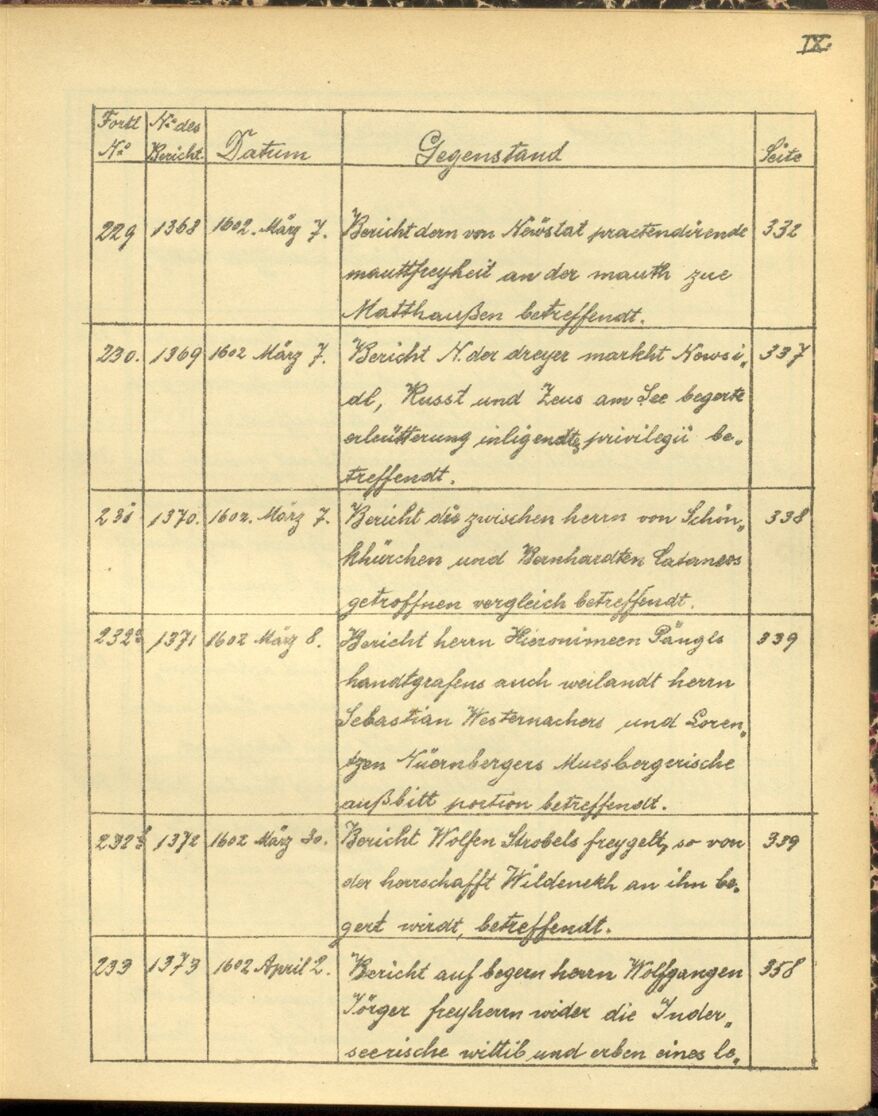 IX.
Fortl No | No des Bericht | Datum | Gegenstand | Seite
229 | 1368 | 1602. März 7. | Bericht dern von Newstat praetendirende | 332
mauttfreyheit an der mauth zue
Matthaußen betreffendt.
230. | 1369 | 1602 März 7. | Bericht N. der dreyer markht Newsi„ | 337
dl, Russt und Zeus am See begerte
erleütterung inligendts privilegii be„
treffendt.
231 | 1370. | 1602. März 7. | Bericht die zwischen herrn von Schön„ | 338
khürchen und Bernhardten
getroffnen vergleich betreffendt.
232a | 1371 | 1602 März 8. | Bericht herrn Hieronimeen Pängls | 339
handtgrafens auch weilandt herrn
Sebastian Westernachers und Loren„
tzen Nüernbergers Muesbergerische
außbitt portion betreffendt.
232b | 1372 | 1602 März 30. | Bericht Wolfen Strobels freygelt, so von | 339
der herrschafft Wildenekh an ihn be„
gert wirdt, betreffendt.
233 | 1373 | 1602 April 2. | Bericht auf begern herrn Wolfgangen | 358
Jörger freyherrn wider die Inder„
seerische wittib und erben eines le„